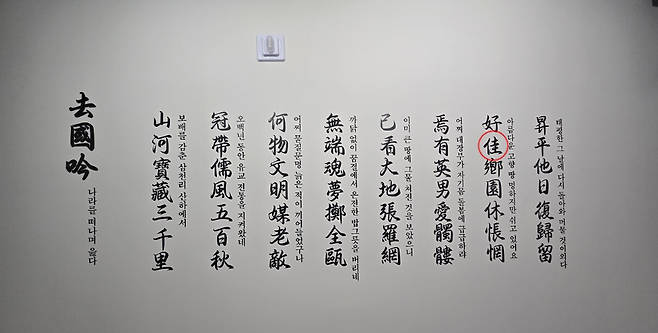 去國吟
나라를 떠나며 읊다
山河寶藏三千里
보배를 감춘 삼천리 산하에서
冠帶儒風五百秋
오백년 동안 유교 전통을 지켜왔네
何物文明媒老敵
어찌 물질문명 늙은 적이 끼어들었구나
無端魂夢擲全甌
까닭 없이 꿈결에서 온전한 밥그릇을 버리네
已看大地張羅網
이미 큰 땅에 그물 쳐진 것을 보았으니
焉有英男愛髑髏
어찌 대장부가 자기몸 돌봄에 급급하랴
好佳鄉園休悵惘
아름다운 고향 땅 멍하지만 쉬고 있어요
昇平他日復歸留
태평한 그 날에 다시 돌아와 머물 것이외다